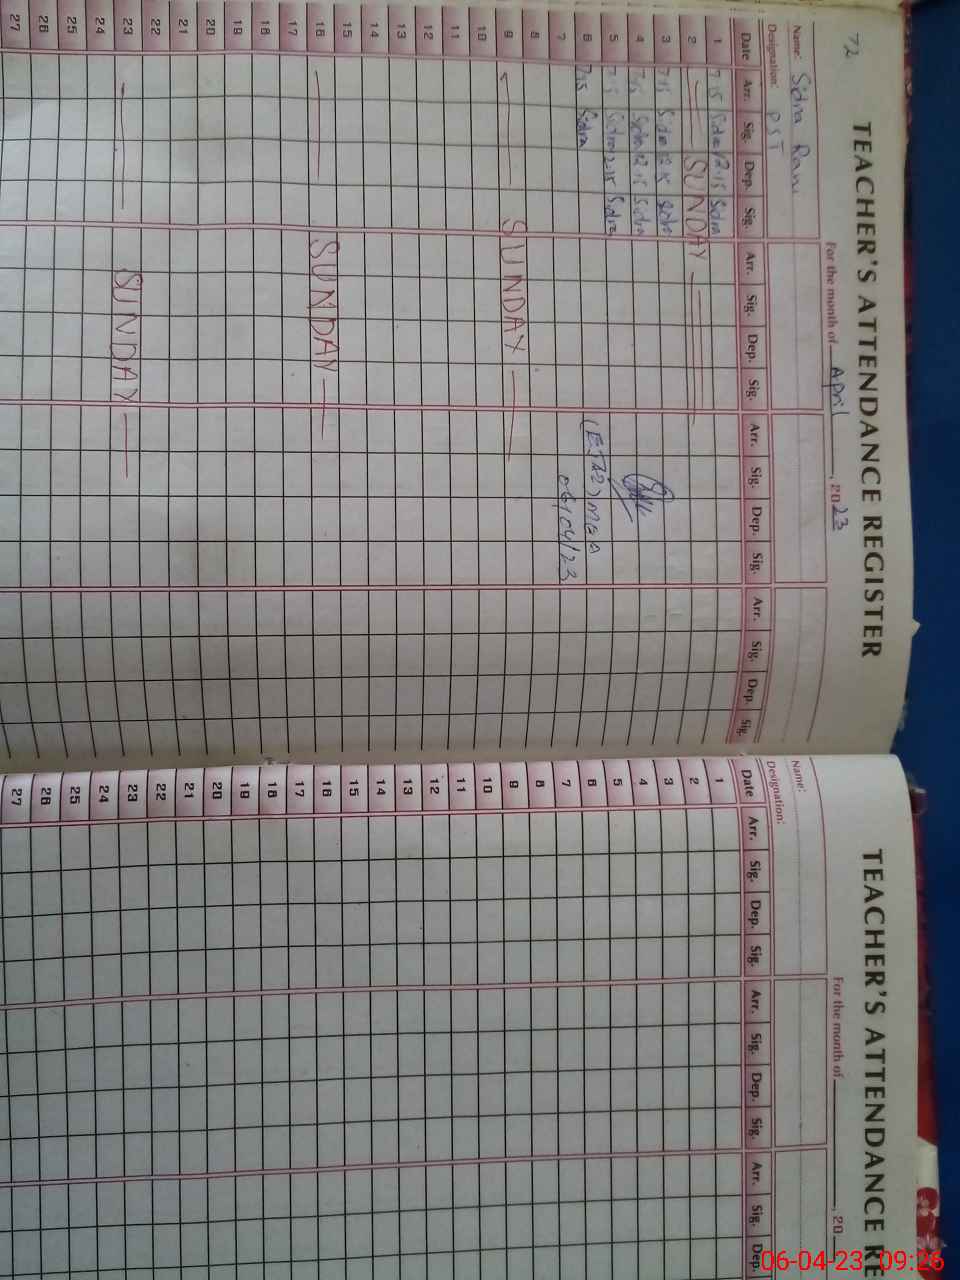 72
TEACHER'S ATTENDANCE REGISTER
For the month of April, 2023
Name: Sidra Rani
Designation: PST
Date Arr. Sig. Dep. Sig. Arr. Sig. Dep. Sig. Arr. Sig. Dep. Sig. Arr. Sig. Dep. Sig.
1 7:15 Sidra 12.15 Sidra
2 SUNDAY
3 7:15 Sidra 12.15 Sidra
4 7:15 Sidra 12.15 Sidra
5 7:15 Sidra 12.15 Sidra
6 7:15 Sidra
MEA
06/04/23
7
8
9 SUNDAY
10
11
12
13
14
15
16 SUNDAY
17
18
19
20
21
22
23 SUNDAY
24
25
26
27
TEACHER'S ATTENDANCE RE
For the month of , 20
Name:
Designation:
Date Arr. Sig. Dep. Sig. Arr. Sig. Dep. Sig. Arr. Sig. Dep.
1
2
3
4
5
6
7
8
9
10
11
12
13
14
15
16
17
18
19
20
21
22
23
24
25
26
27
06-04-23 09:26